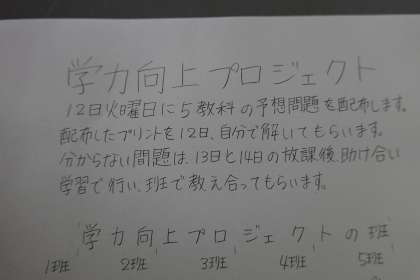 学力向上プロジェクト
12日火曜日に5教科の予想問題を配布します。
配布したプリントを12日、自分で解いてもらいます。
分からない問題は、13日と14日の放課後、助け合い
学習で行い、班で教え合ってもらいます。
学力向上プロジェクトの班
1班 2班 3班 4班 5班